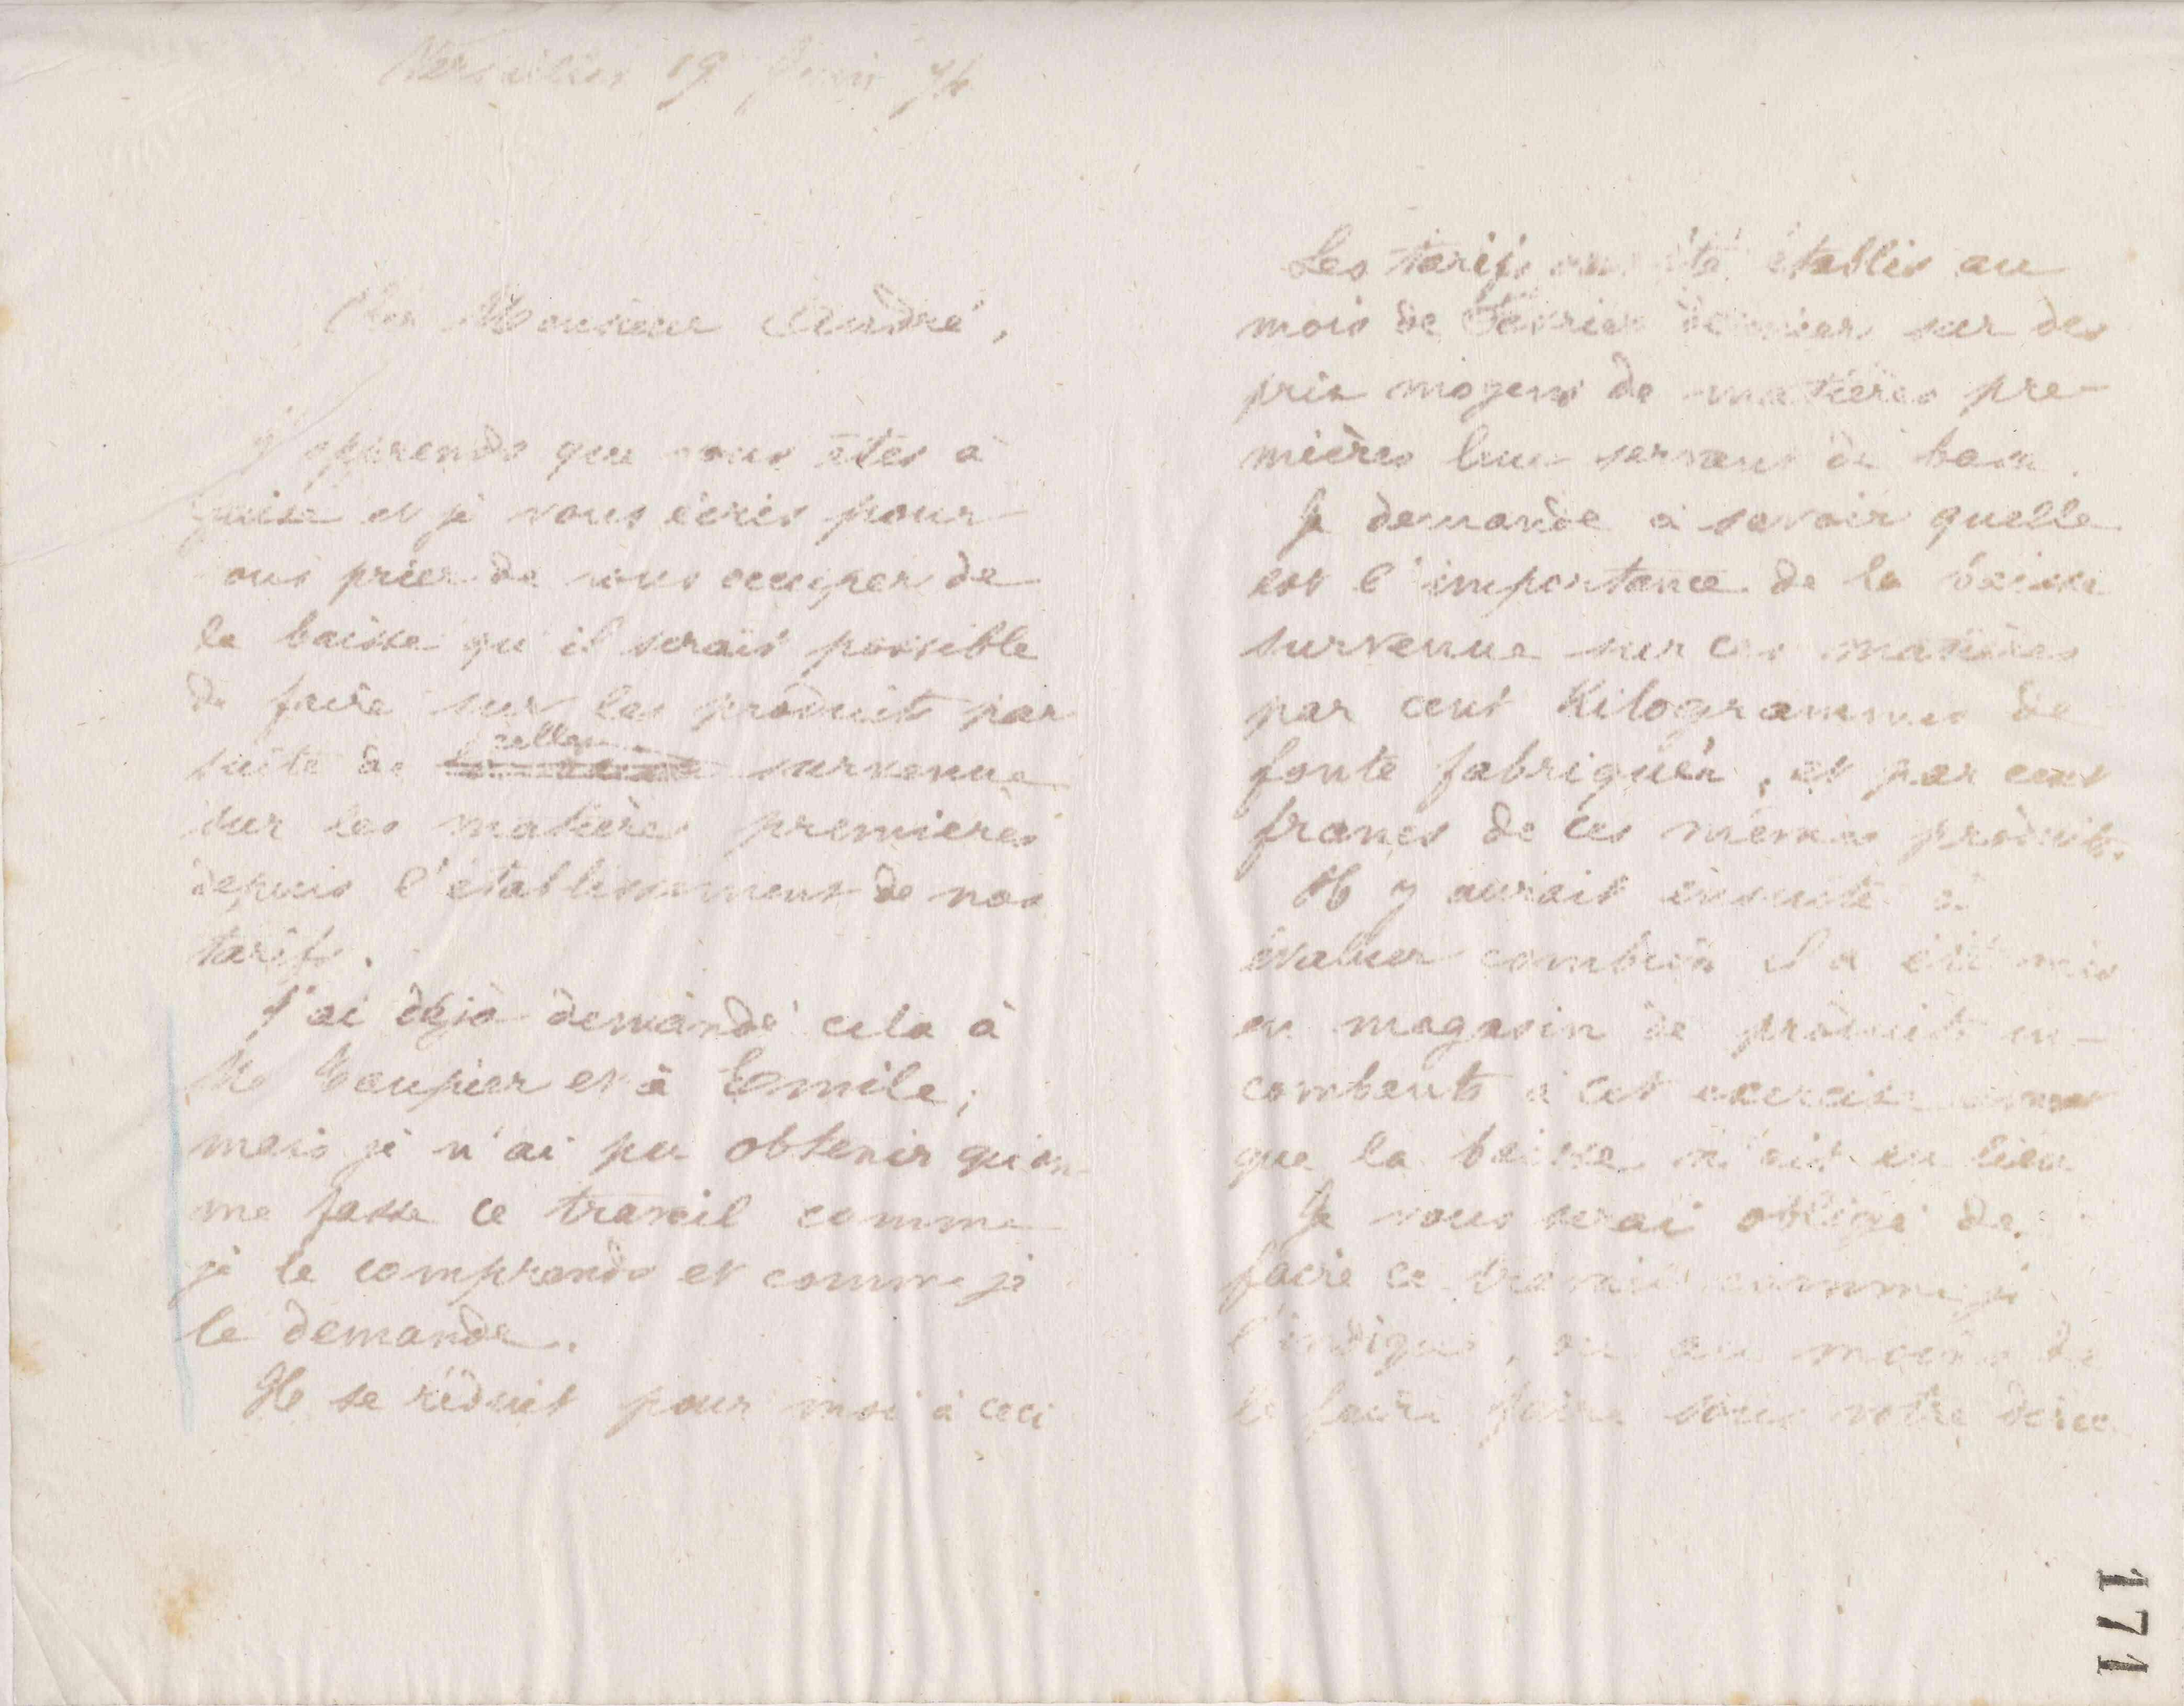 Versailles 19 Juin 74
Cher Monsieur André,
J'apprends que vous êtes à
Guise et je vous écris pour
ous prier de vous occuper de
la baisse qu'il serait possible
de faire sur les produits par
suite de celle survenue
sur les matières premières
depuis l'établissement de nos
tarifs.
J'ai déjà demandé cela à
Mr et à Emile;
mais je n'ai pu obtenir qu'on
me fasse ce travail comme
je le comprends et comme je
le demande.
Il se réduit pour moi à ceci
Les tarifs ont été établis au
mois de Février dernier sur des
prix moyens de matières pre-
mières leur servant de base.
Je demande à savoir quelle
est l'importance de la baisse
survenue sur ces matières
par cent Kilogrammes de
fonte fabriquée, et par cent
francs de ces mêmes produits.
Il y aurait ensuite à
évaluer combien il a été mis
en magasin de produits in-
combants à cet exercice avant
que la baisse n'ait eu lieu
Je vous serai obligé de
faire ce travail comme je
l'indique, ou au moins de
le faire faire sous votre direc
171